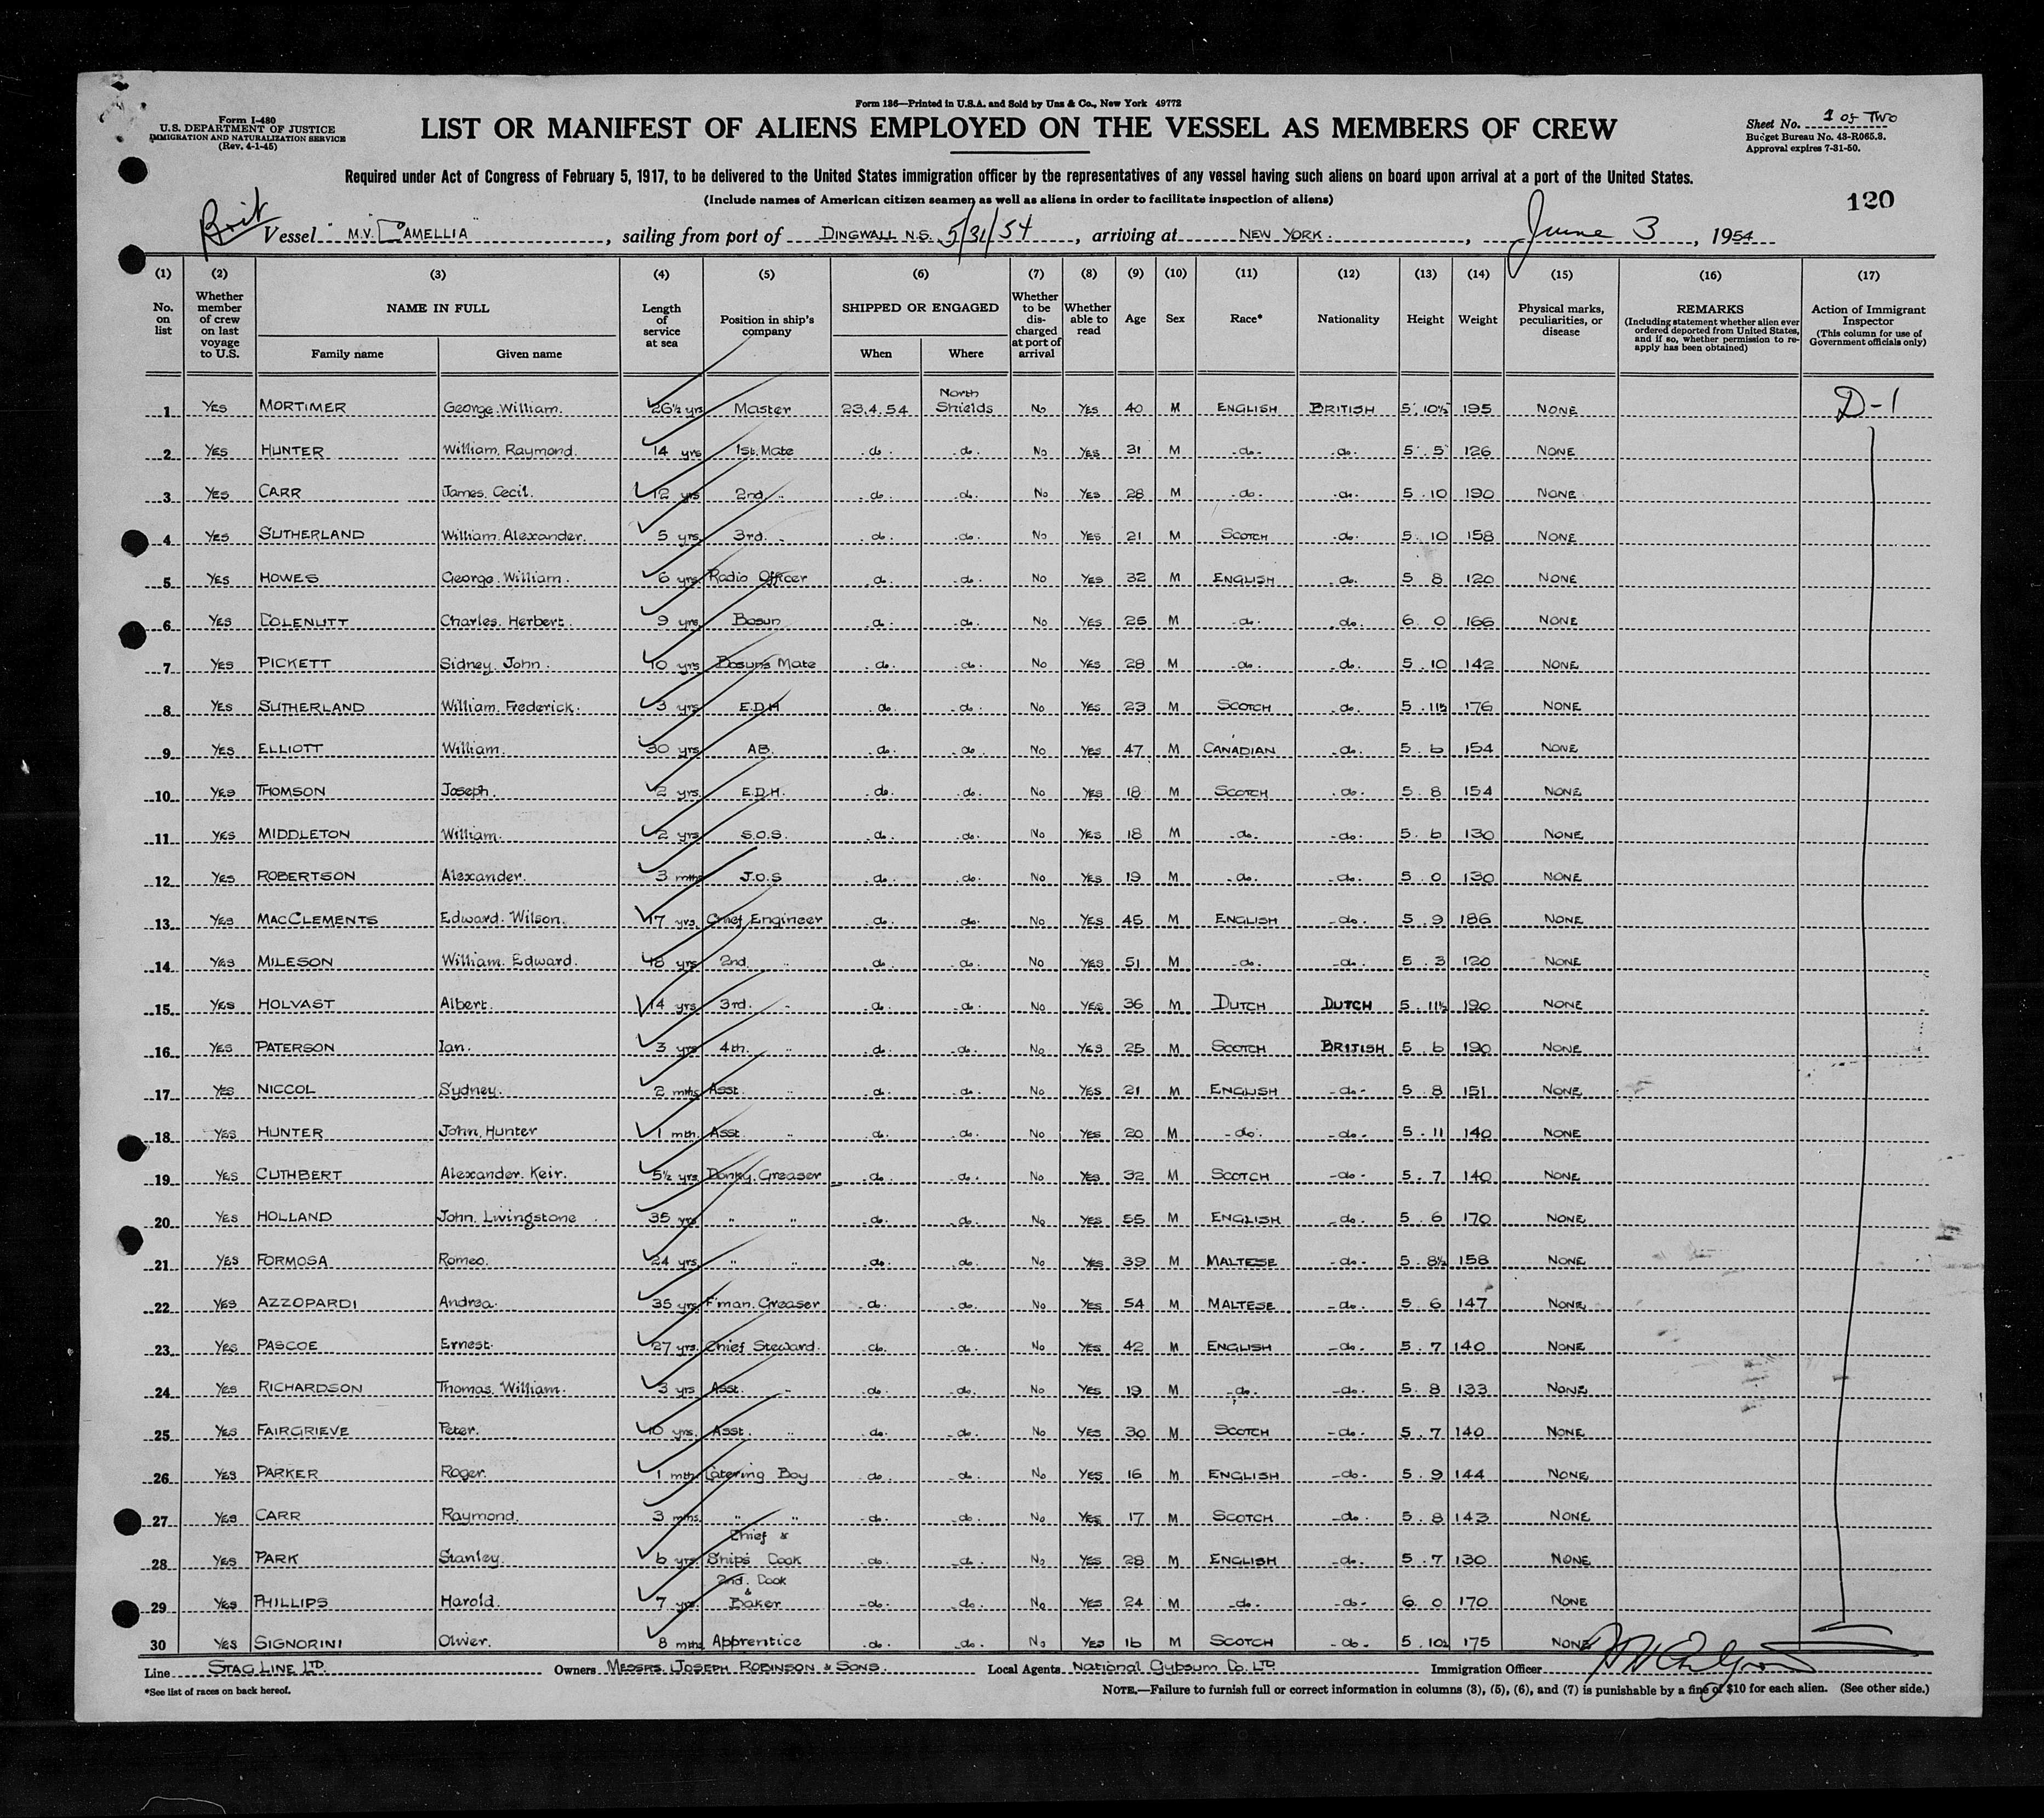 Form 136—Printed in U.S.A. and Sold by Unz & Co., New York 49772
Form I-480
U.S. DEPARTMENT OF JUSTICE
IMMIGRATION AND NATURALIZATION SERVICE
(Rev. 4-1-45)
LIST OR MANIFEST OF ALIENS EMPLOYED ON THE VESSEL AS MEMBERS OF CREW
Sheet No. 1 of Two
Budget Bureau No. 43-R065.3.
Approval expires 7-31-50.
Required under Act of Congress of February 5, 1917, to be delivered to the United States immigration officer by the representatives of any vessel having such aliens on board upon arrival at a port of the United States.
(Include names of American citizen seamen as well as aliens in order to facilitate inspection of aliens)
120
Brit Vessel M.V. CAMELLIA, sailing from port of DINGWALL N.S. 5/31/54, arriving at NEW YORK., June 3, 1954
(1) (2) (3) (4) (5) (6) (7) (8) (9) (10) (11) (12) (13) (14) (15) (16) (17)
No. on list Whether member of crew on last voyage to U.S. NAME IN FULL Family name Given name Length of service at sea Position in ship's company SHIPPED OR ENGAGED When Where Whether to be discharged at port of arrival Whether able to read Age Sex Race* Nationality Height Weight Physical marks, peculiarities, or disease REMARKS (Including statement whether alien ever ordered deported from United States, and if so, whether permission to re-apply has been obtained) Action of Immigrant Inspector (This column for use of Government officials only)
1 YES MORTIMER George William. 26½ yrs Master 23.4.54 North Shields No YES 40 M ENGLISH BRITISH 5' 10½ 195 NONE D-1
2 YES HUNTER William. Raymond. 14 yrs 1st. Mate do. do. No YES 31 M do. do. 5 5 126 NONE
3 YES CARR James. Cecil. 12 yrs 2nd " do. do. No YES 28 M do. do. 5 10 190 NONE
4 YES SUTHERLAND William. Alexander. 5 yrs 3rd. " do. do. No YES 21 M SCOTCH do. 5 10 158 NONE
5 YES HOWES George. William. 6 yrs Radio Officer do. do. No YES 32 M ENGLISH do. 5 8 120 NONE
6 YES COLENUTT Charles. Herbert. 9 yrs Bosun do. do. No YES 25 M do. do. 6 0 166 NONE
7 YES PICKETT Sidney. John. 10 yrs Bosuns Mate do. do. No YES 28 M do. do. 5 10 142 NONE
8 YES SUTHERLAND William. Frederick. 3 yrs E.D.H do. do. No YES 23 M SCOTCH do. 5 11½ 176 NONE
9 YES ELLIOTT William. 30 yrs AB. do. do. No YES 47 M CANADIAN do. 5 6 154 NONE
10 YES THOMSON Joseph. 2 yrs. E.D.H. do. do. No YES 18 M SCOTCH do. 5 8 154 NONE
11 YES MIDDLETON William. 2 yrs S.O.S. do. do. No YES 18 M do. do. 5 6 130 NONE
12 YES ROBERTSON Alexander. 3 mths J.O.S do. do. No YES 19 M do. do. 5 0 130 NONE
13 YES MACCLEMENTS Edward. Wilson. 17 yrs. Chief Engineer do. do. No YES 45 M ENGLISH do. 5 9 186 NONE
14 YES MILESON William. Edward. 18 yrs 2nd. " do. do. No YES 51 M do. do. 5 3 120 NONE
15 YES HOLVAST Albert. 14 yrs 3rd. " do. do. No YES 36 M DUTCH DUTCH 5 11½ 190 NONE
16 YES PATERSON Ian. 3 yrs 4th. " do. do. No YES 25 M SCOTCH BRITISH 5 6 190 NONE
17 YES NICCOL Sydney. 2 mths Asst. " do. do. No YES 21 M ENGLISH do. 5 8 151 NONE
18 YES HUNTER John. Hunter 1 mth. Asst. " do. do. No YES 20 M do. do. 5 11 140 NONE
19 YES CUTHBERT Alexander. Keir. 5½ yrs. Donky. Greaser do. do. No YES 32 M SCOTCH do. 5 7 140 NONE
20 YES HOLLAND John. Livingstone 35 yrs " " do. do. No YES 55 M ENGLISH do. 5 6 170 NONE
21 YES FORMOSA Romeo. 24 yrs. " " do. do. No YES 39 M MALTESE do. 5 8½ 158 NONE
22 YES AZZOPARDI Andrea. 35 yrs F'man. Greaser do. do. No YES 54 M MALTESE do. 5 6 147 NONE
23 YES PASCOE Ernest. 27 yrs. Chief Steward. do. do. No YES 42 M ENGLISH do. 5 7 140 NONE
24 YES RICHARDSON Thomas. William. 3 yrs Asst. " do. do. No YES 19 M do. do. 5 8 133 NONE
25 YES FAIRGRIEVE Peter. 10 yrs. Asst. " do. do. No YES 30 M SCOTCH do. 5 7 140 NONE
26 YES PARKER Roger. 1 mth Catering Boy do. do. No YES 16 M ENGLISH do. 5 9 144 NONE
27 YES CARR Raymond. 3 mths. " " do. do. No YES 17 M SCOTCH do. 5 8 143 NONE
28 YES PARK Stanley. 6 yrs Chief & Ships Cook do. do. No YES 28 M ENGLISH do. 5 7 130 NONE
29 YES PHILLIPS Harold. 7 yrs 2nd. Cook & Baker do. do. No YES 24 M do. do. 6 0 170 NONE
30 YES SIGNORINI Oliver. 8 mths Apprentice do. do. No YES 16 M SCOTCH do. 5 10½ 175 NONE
Line STAG LINE LTD. Owners MESSRS. JOSEPH ROBINSON & SONS. Local Agents National Gypsum Co. LTD Immigration Officer
*See list of races on back hereof.
NOTE.—Failure to furnish full or correct information in columns (3), (5), (6), and (7) is punishable by a fine of $10 for each alien. (See other side.)